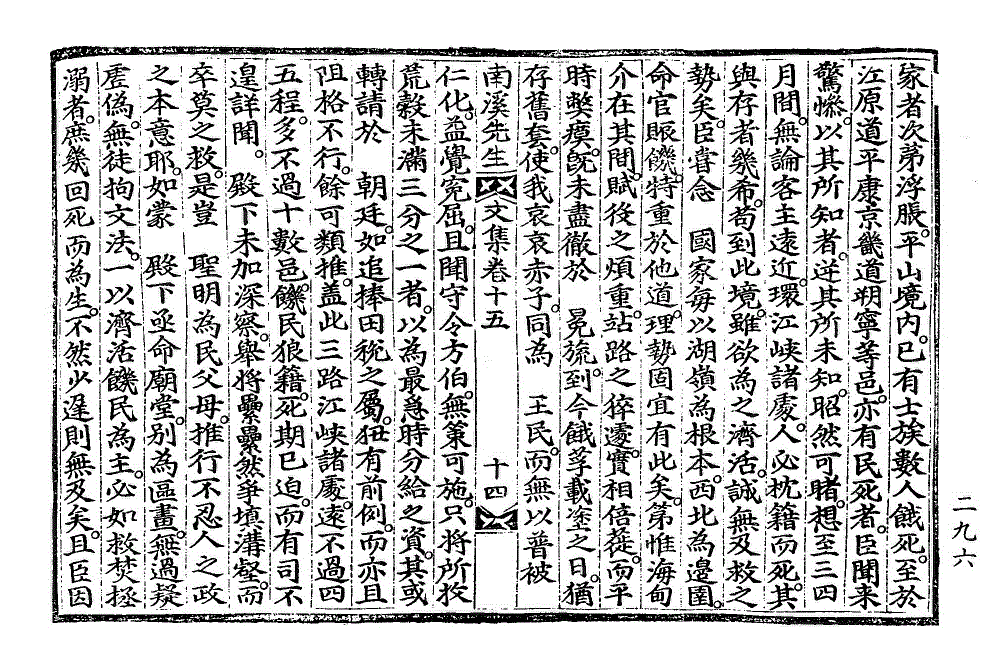 家者次第浮脹。平山境內。已有士族數人餓死。至於
江原道平康京畿道朔寧等邑。亦有民死者。臣聞來
驚慘。以其所知者。逆其所未知。昭然可睹。想至三四
月間。無論客主遠近。環江峽諸處。人必枕籍而死。其
與存者幾希。苟到此境。雖欲為之濟活。誠無及救之
勢矣。臣嘗念 國家每以湖嶺為根本。西北為邊圉。
命官賑饑。特重於他道。理勢固宜有此矣。第惟海甸
介在其間。賦役之煩重。站路之猝遽。實相倍蓰。而平
時獘瘼。旣未盡徹於 冕旒。到今餓莩載塗之日。猶
存舊套。使我哀哀赤子。同為 王民。而無以普被
南溪先生文集卷十五 十四
仁化。益覺寃屈。且聞守令方伯。無策可施。只將所收
荒穀未滿三分之一者。以為最急時分給之資。其或
轉請於 朝廷。如追捧田稅之屬。狃有前例。而亦且
阻格不行。餘可類推。蓋此三路江峽諸處。遠不過四
五程。多不過十數邑。饑民狼籍。死期已迫。而有司不
遑詳聞。 殿下未加深察。擧將纍纍然爭塡溝壑。而
卒莫之救。是豈 聖明為民父母。推行不忍人之政
之本意耶。如蒙 殿下亟命廟堂。別為區畫。無過疑
虗偽。無徒拘文法。一以濟活饑民為主。必如救焚拯
溺者。庶幾回死而為生。不然少遲則無及矣。且臣因
二九六